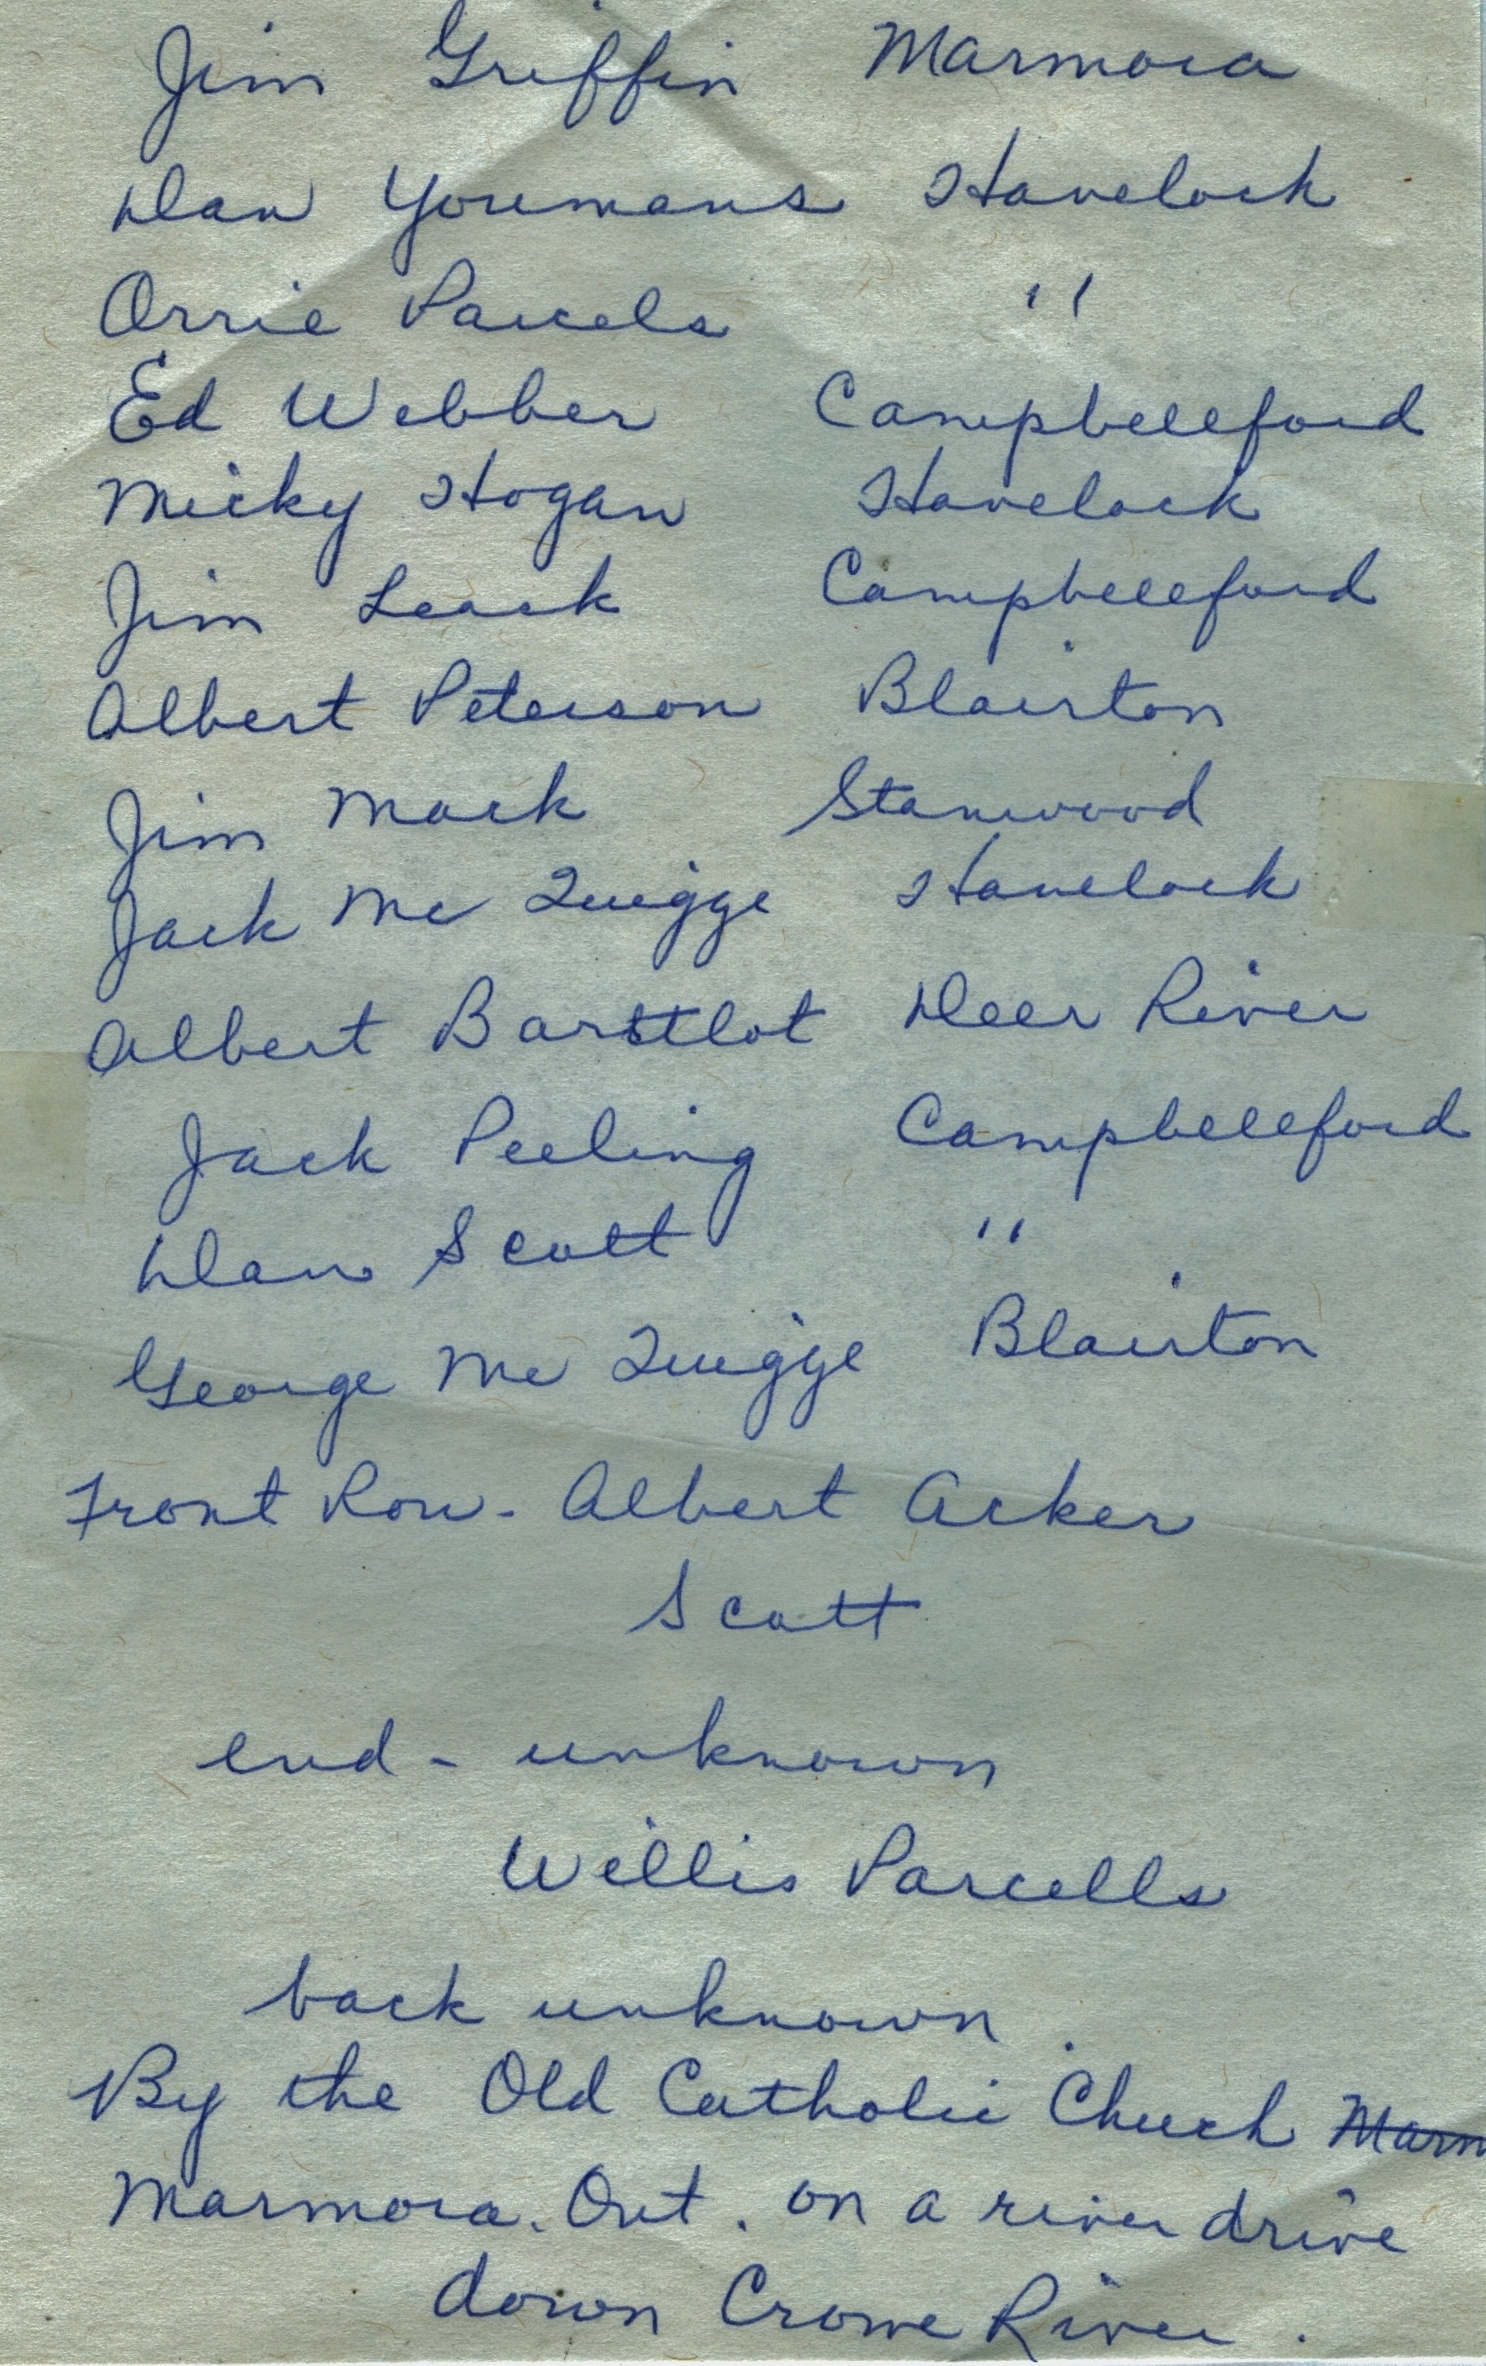 Jim Griffin Marmora
Dan Youmans Havelock
Orrie Parcels "
Ed Webber Campbellford
Micky Hogan Havelock
Jim Leack Campbellford
Albert Peterson Blairton
Jim Mack Stanwood
Jack Mc Quigge Havelock
Albert Barstlot Deer River
Jack Peeling Campbellford
Dan Scott "
George Mc Quigge Blairton
Front Row - Albert Acker
Scott
end - unknown
Willis Parcells
back unknown.
By the Old Catholic Church Marm
Marmora. Ont. on a river drive
down Crowe River.